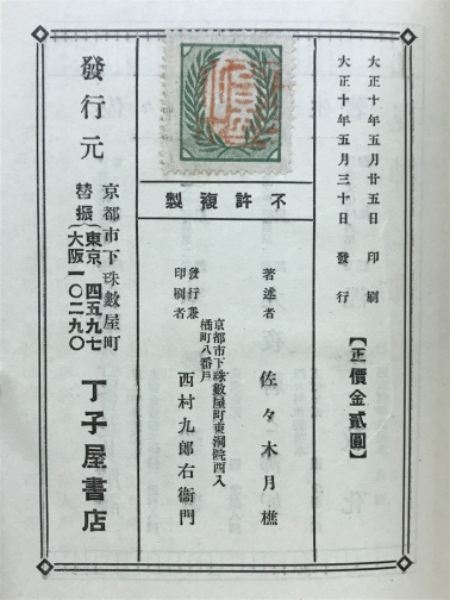 大正十年五月廿五日 印刷
大正十年五月三十日 發行
【正價金貳圓】
不許複製
著述者 佐々木月樵
京都市下珠數屋町東洞院西入
橘町八番戸
發行兼
印刷者 西村九郎右衞門
發行元 京都市下珠數屋町
替振(東京 四五九七
大阪一〇二九〇
丁子屋書店